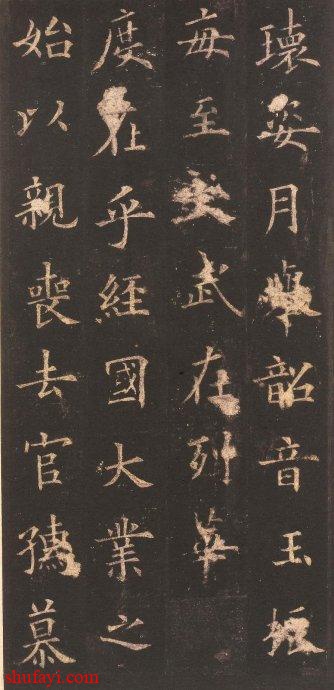 瓌姿月韶音玉振
每至武在列
度在乎經國大業之
始以親喪去官孺慕
shufayi.com